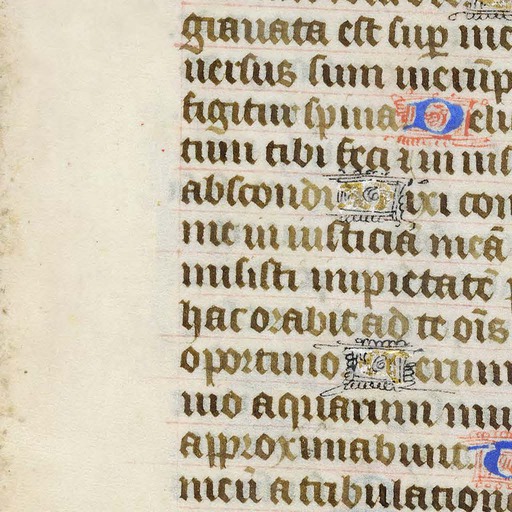 grauata est sup̄ me
uersus sum in erūp
figitur spina Deli
tum tibi feci ⁊ iniust
abscondi Dixi con
me iniusticiā meā
misisti impietatē
hac orabit ad te oīs
oportuno Uerum
uio aquarum mul
approximabunt. T
meū a tribulatione